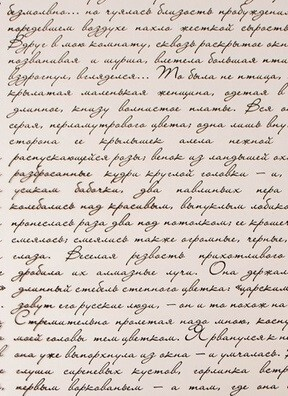 безмолвно... но чуялась близость пробуждени
поредевшем воздухе пахло жесткой сырость
Вдруг в мою комнату, сквозь раскрытое окн
позванивая и шурша, влетела большая пти
вздрогнул, вгляделся... То была не птица,
крылатая маленькая женщина, одетая в
длинное, книзу волнистое платье. Вся о
серая, перламутрового цвета; одна лишь вну
сторона ее крылышек алела нежной
распускающейся розы; венок из ландышей ох
разбросанные кудри круглой головки — и,
усикам бабочки, два павлиньих пера
колебались над красивым, выпуклым лобико
пронеслась раза два под потолком; ее крошеч
смеялось; смеялись также огромные, черные,
глаза. Веселая резвость прихотливого
дробила их алмазные лучи. Она держал
длинный стебель степного цветка: «царским
зовут его русские люди, — он и то похож на
Стремительно пролетая надо мною, косну
моей головы тем цветком. Я рванулся к н
она уже выпорхнула из окна — и умчалась.
глуши сиреневых кустов, горлинка встр
первым воркованьем — а там, где она